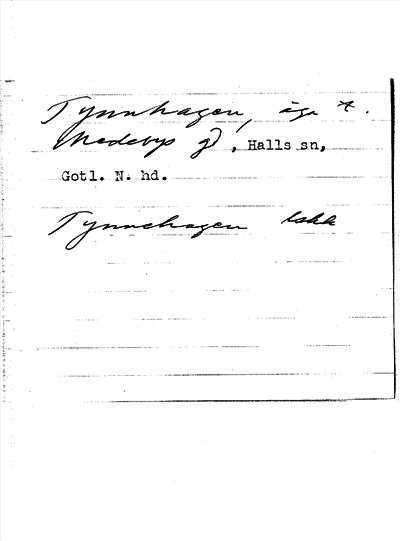 Tynnhagen, äga t.
Medebys g, Halls sn,
Gotl. N. hd.
Tynnehagen lskk